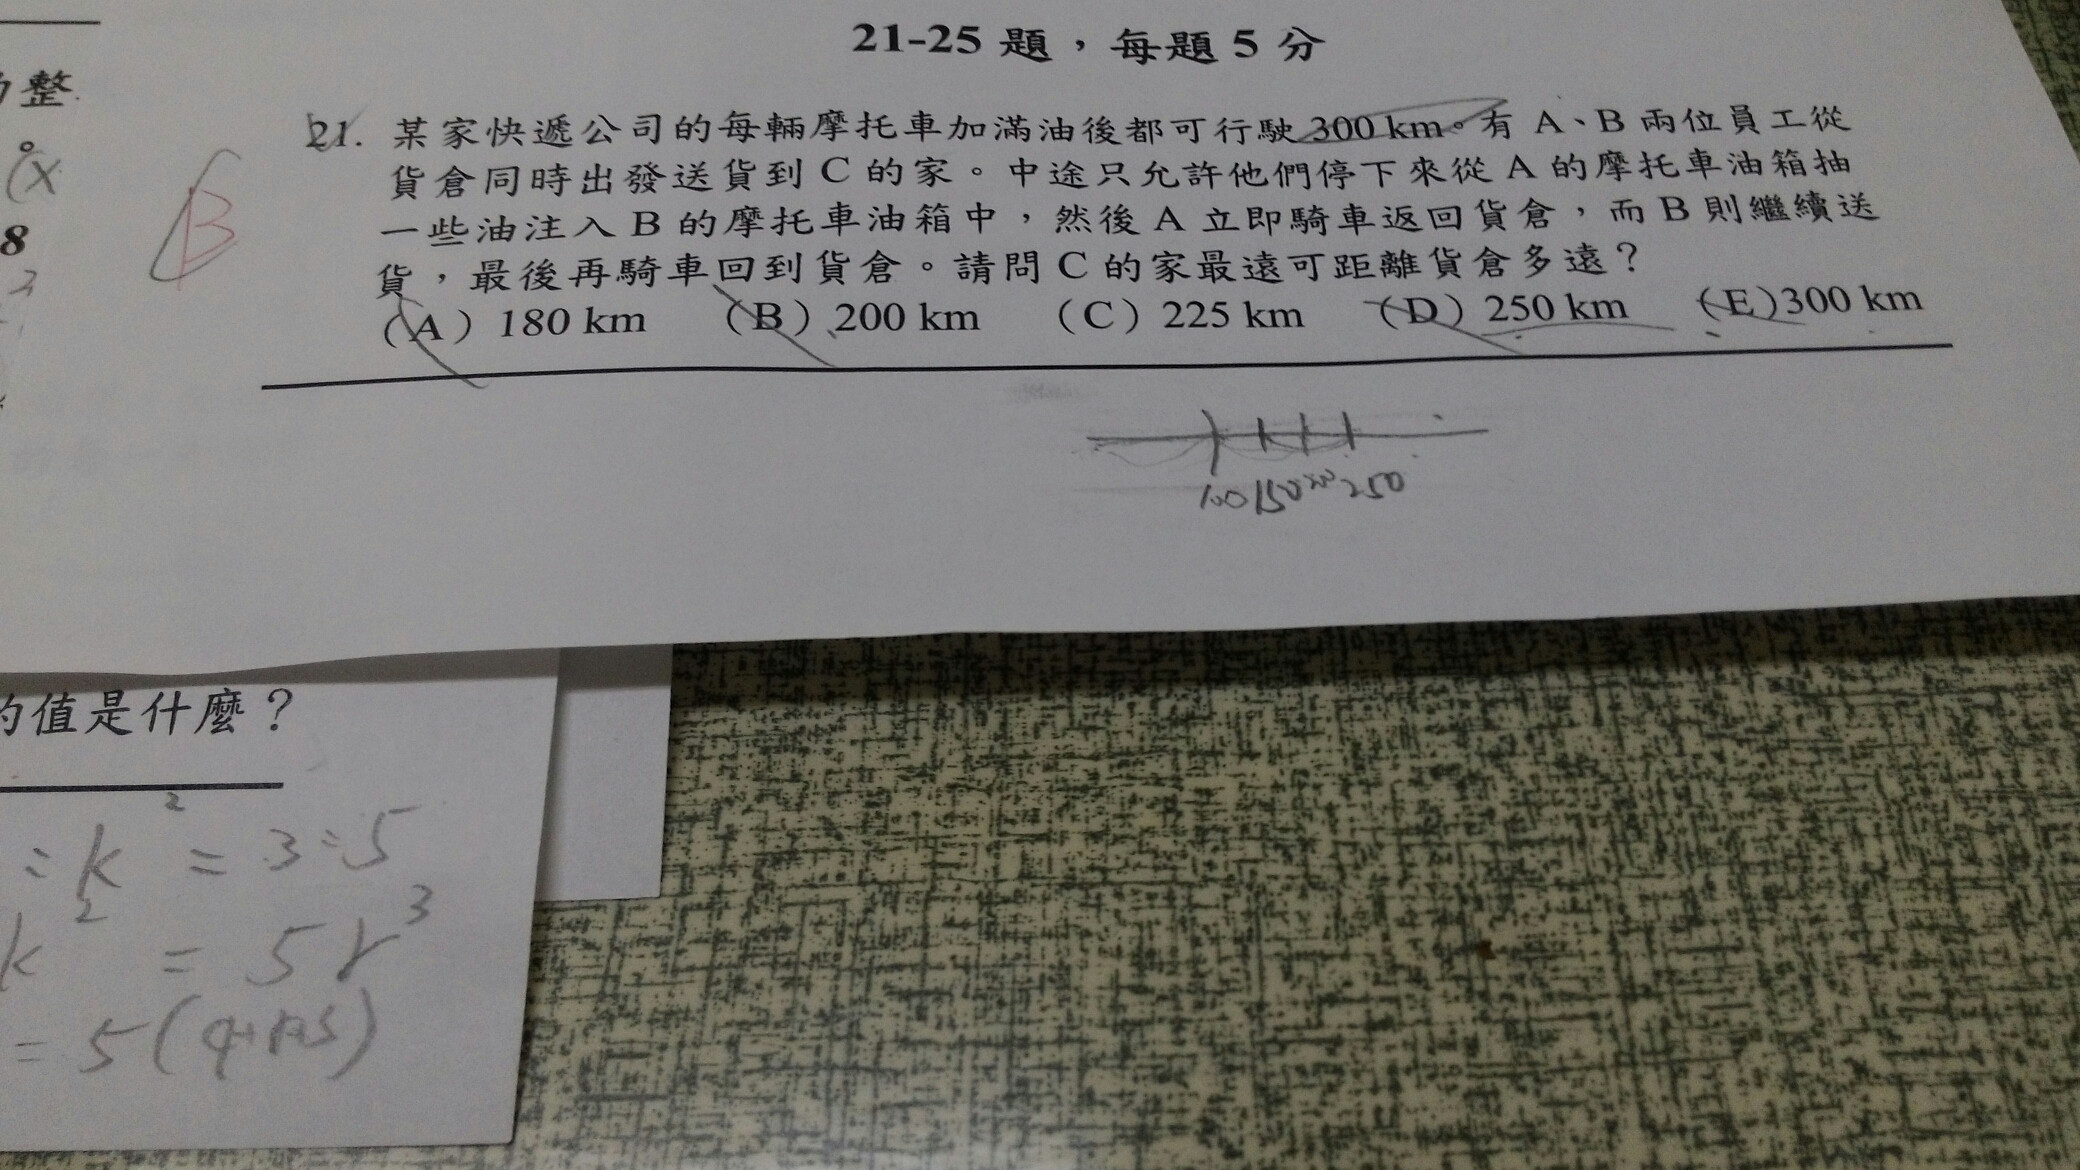 21-25 題，每題 5 分
整
。
(x
8
3
B
21. 某家快遞公司的每輛摩托車加滿油後都可行駛 300 km。有 A、B 兩位員工從
貨倉同時出發送貨到 C 的家。中途只允許他們停下來從 A 的摩托車油箱抽
一些油注入 B 的摩托車油箱中，然後 A 立即騎車返回貨倉，而 B 則繼續送
貨，最後再騎車回到貨倉。請問 C 的家最遠可距離貨倉多遠？
(A) 180 km (B) 200 km (C) 225 km (D) 250 km (E)300 km
100 150 200 250
的值是什麼？
: k² = 3:5
k² = 5r³
= 5(